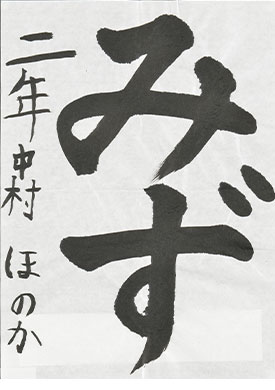 みず
二年 中村 ほのか